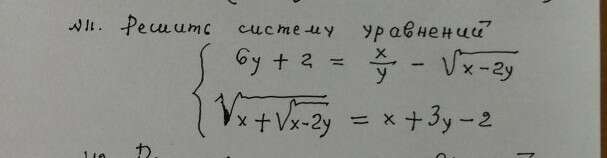 №11. Решить систему уравнений
6y + 2 = x/y - √(x-2y)
√(x+√(x-2y)) = x + 3y - 2